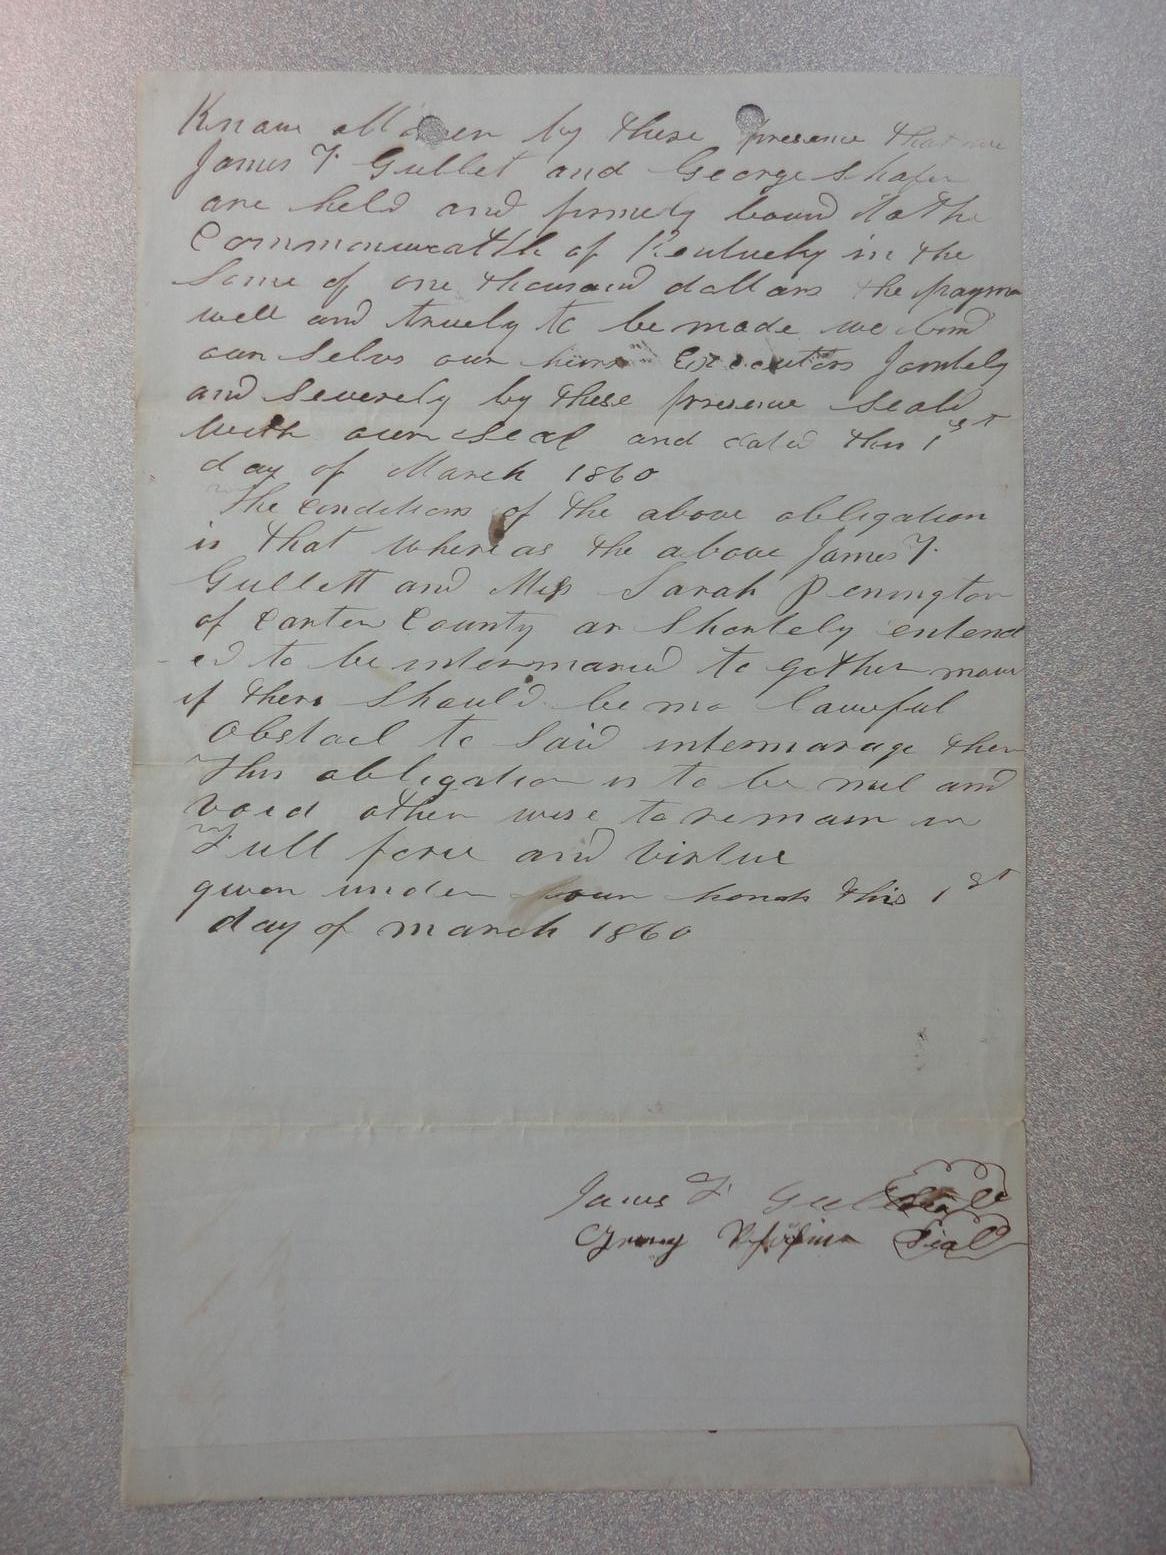 Know all men by these presence that we
James F. Gullet and George Shafer
are held and firmely bound to the
Commonweatth of Kentucky in the
Some of one thousand dollars the payme
well and truely to be made we bind
our selvs our heirs Executors Jointely
and Severely by these presence Seald
With our Seal and dated this 1st
day of March 1860
The conditions of the above obligation
is that where as the above James F.
Gullett and Miss Sarah Penington
of Carter County ar Shortely entend
ed to be intermaried to gether now
if there Should be no lawful
Obstacl to Said intermarage then
This obligation is to be nul and
Void other wise to remain in
Full force and Virtue
given under our hands this 1st
day of march 1860
James F Gull Seal
Seal